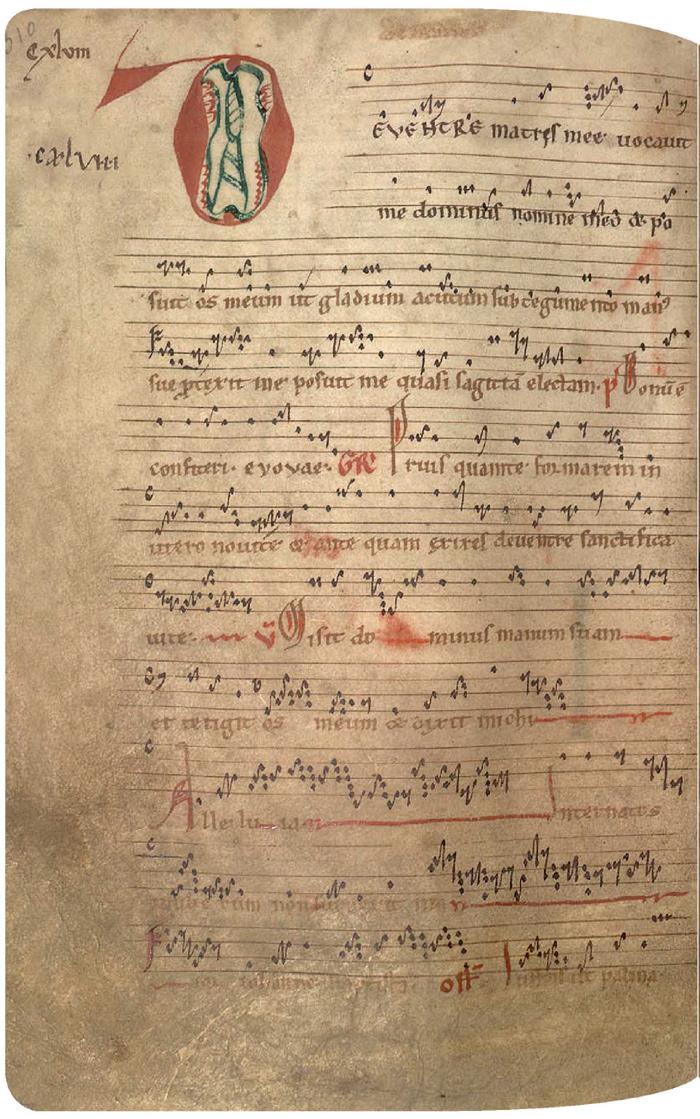 cxlviii
cxlviii
D
E VENTRE matris mee uocauit
me dominus nomine meo & po
suit os meum ut gladium acutum sub tegumento man
sue protexit me posuit me quasi sagittā electam. p Bonū ē
confiteri. euouae. GR Priusquam te formarem in
utero noui te & ante quam exires deuentre sanctifica
ui te. V Misit do minus manum suam
et tetigit os meum & dixit michi
Alle lu ia Internatos
non surrexit
iohanne off Iustus ut palma